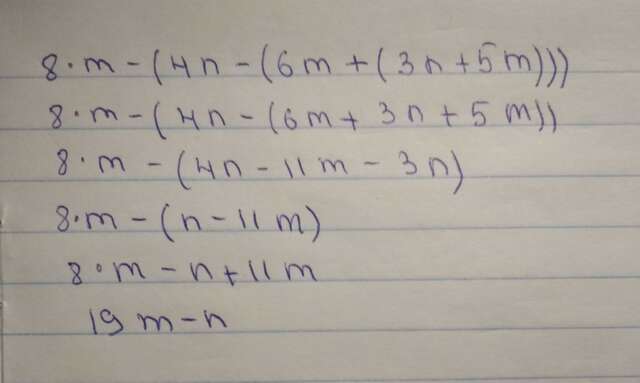 8·m-(4n-(6m+(3n+5m)))
8·m-(4n-(6m+3n+5m))
8·m-(4n-11m-3n)
8·m-(n-11m)
8·m-n+11m
19m-n